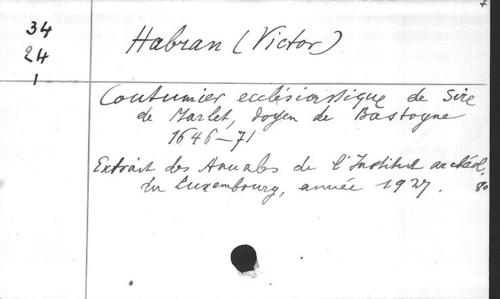 34
24
1
Habran (Victor)
Coutumier ecclésiastique de Sire
de Marlet, doyen de Bastogne
1646-71
Extrait des Annales de l'Institut archéol.
du Luxembourg, année 1927. 80